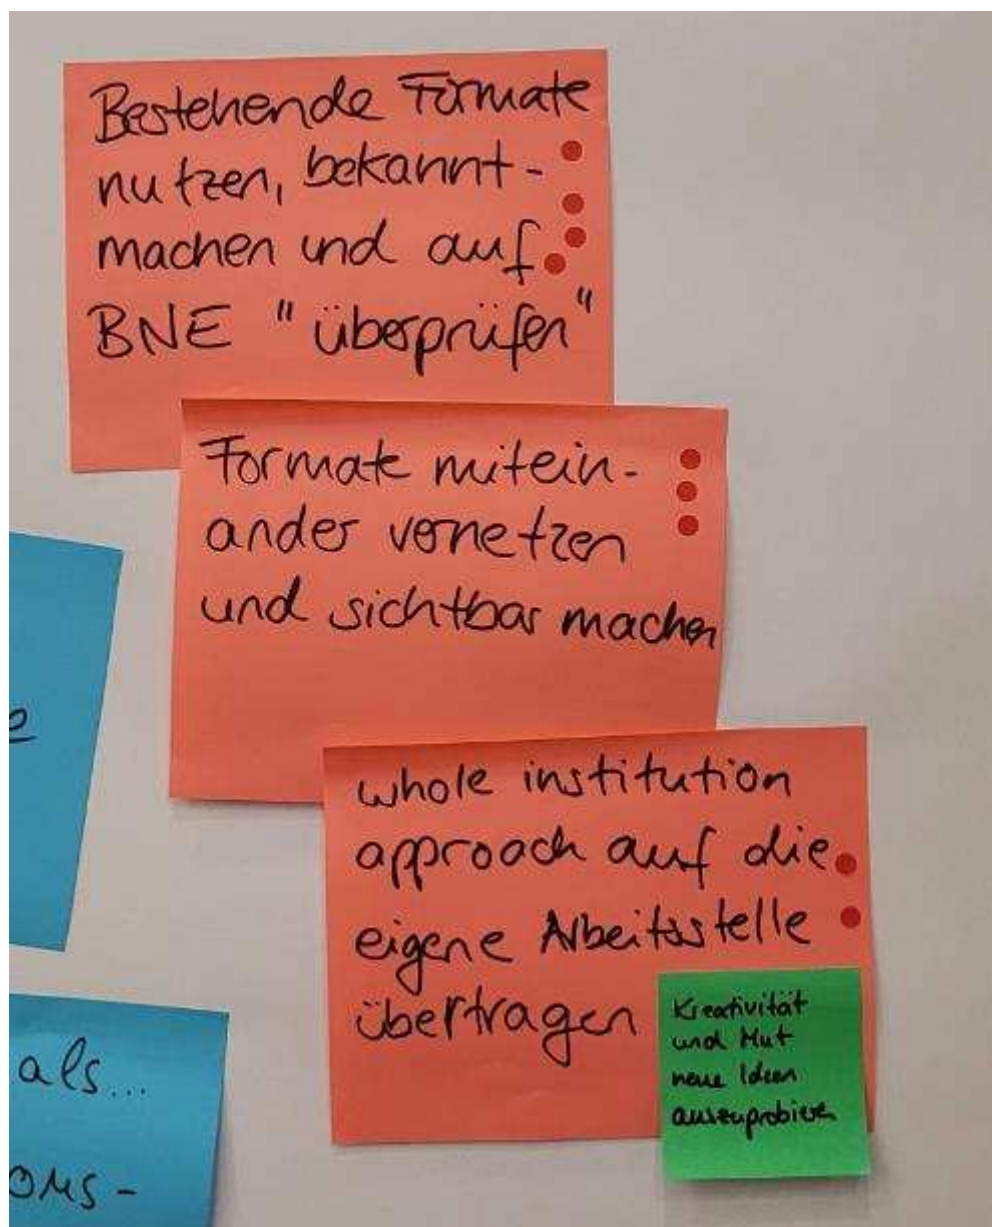 Bestehende Formate
nutzen, bekannt-
machen und auf
BNE "überprüfen"
Formate mitein-
ander vernetzen
und sichtbar machen
whole institution
approach auf die
eigene Arbeitsstelle
übertragen
Kreativität
und Mut
neue Ideen
auszuprobieren
als...